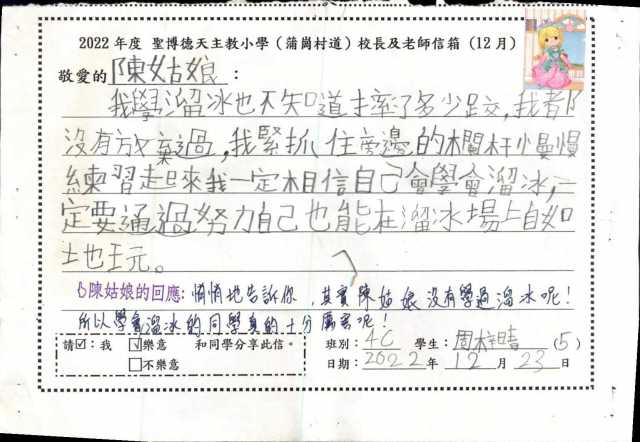 2022 年度 聖博德天主教小學（蒲崗村道）校長及老師信箱（12月）
敬愛的 陳姑娘 ：
我學溜冰也不知道摔了多少跤，我都
沒有放棄過，我緊抓住旁邊的欄杆慢慢
練習起來我一定相信自己會學會溜冰，一
定要通過努力自己也能在溜冰場上自如
土地玩。
陳姑娘的回應: 悄悄地告訴你，其實陳姑娘沒有學過溜冰呢！
所以學會溜冰的同學真的十分厲害呢！
請☑：我 ☑樂意 和同學分享此信。 班別：4C 學生：周梓晴 (5)
□不樂意 日期：2022 年 12 月 23 日